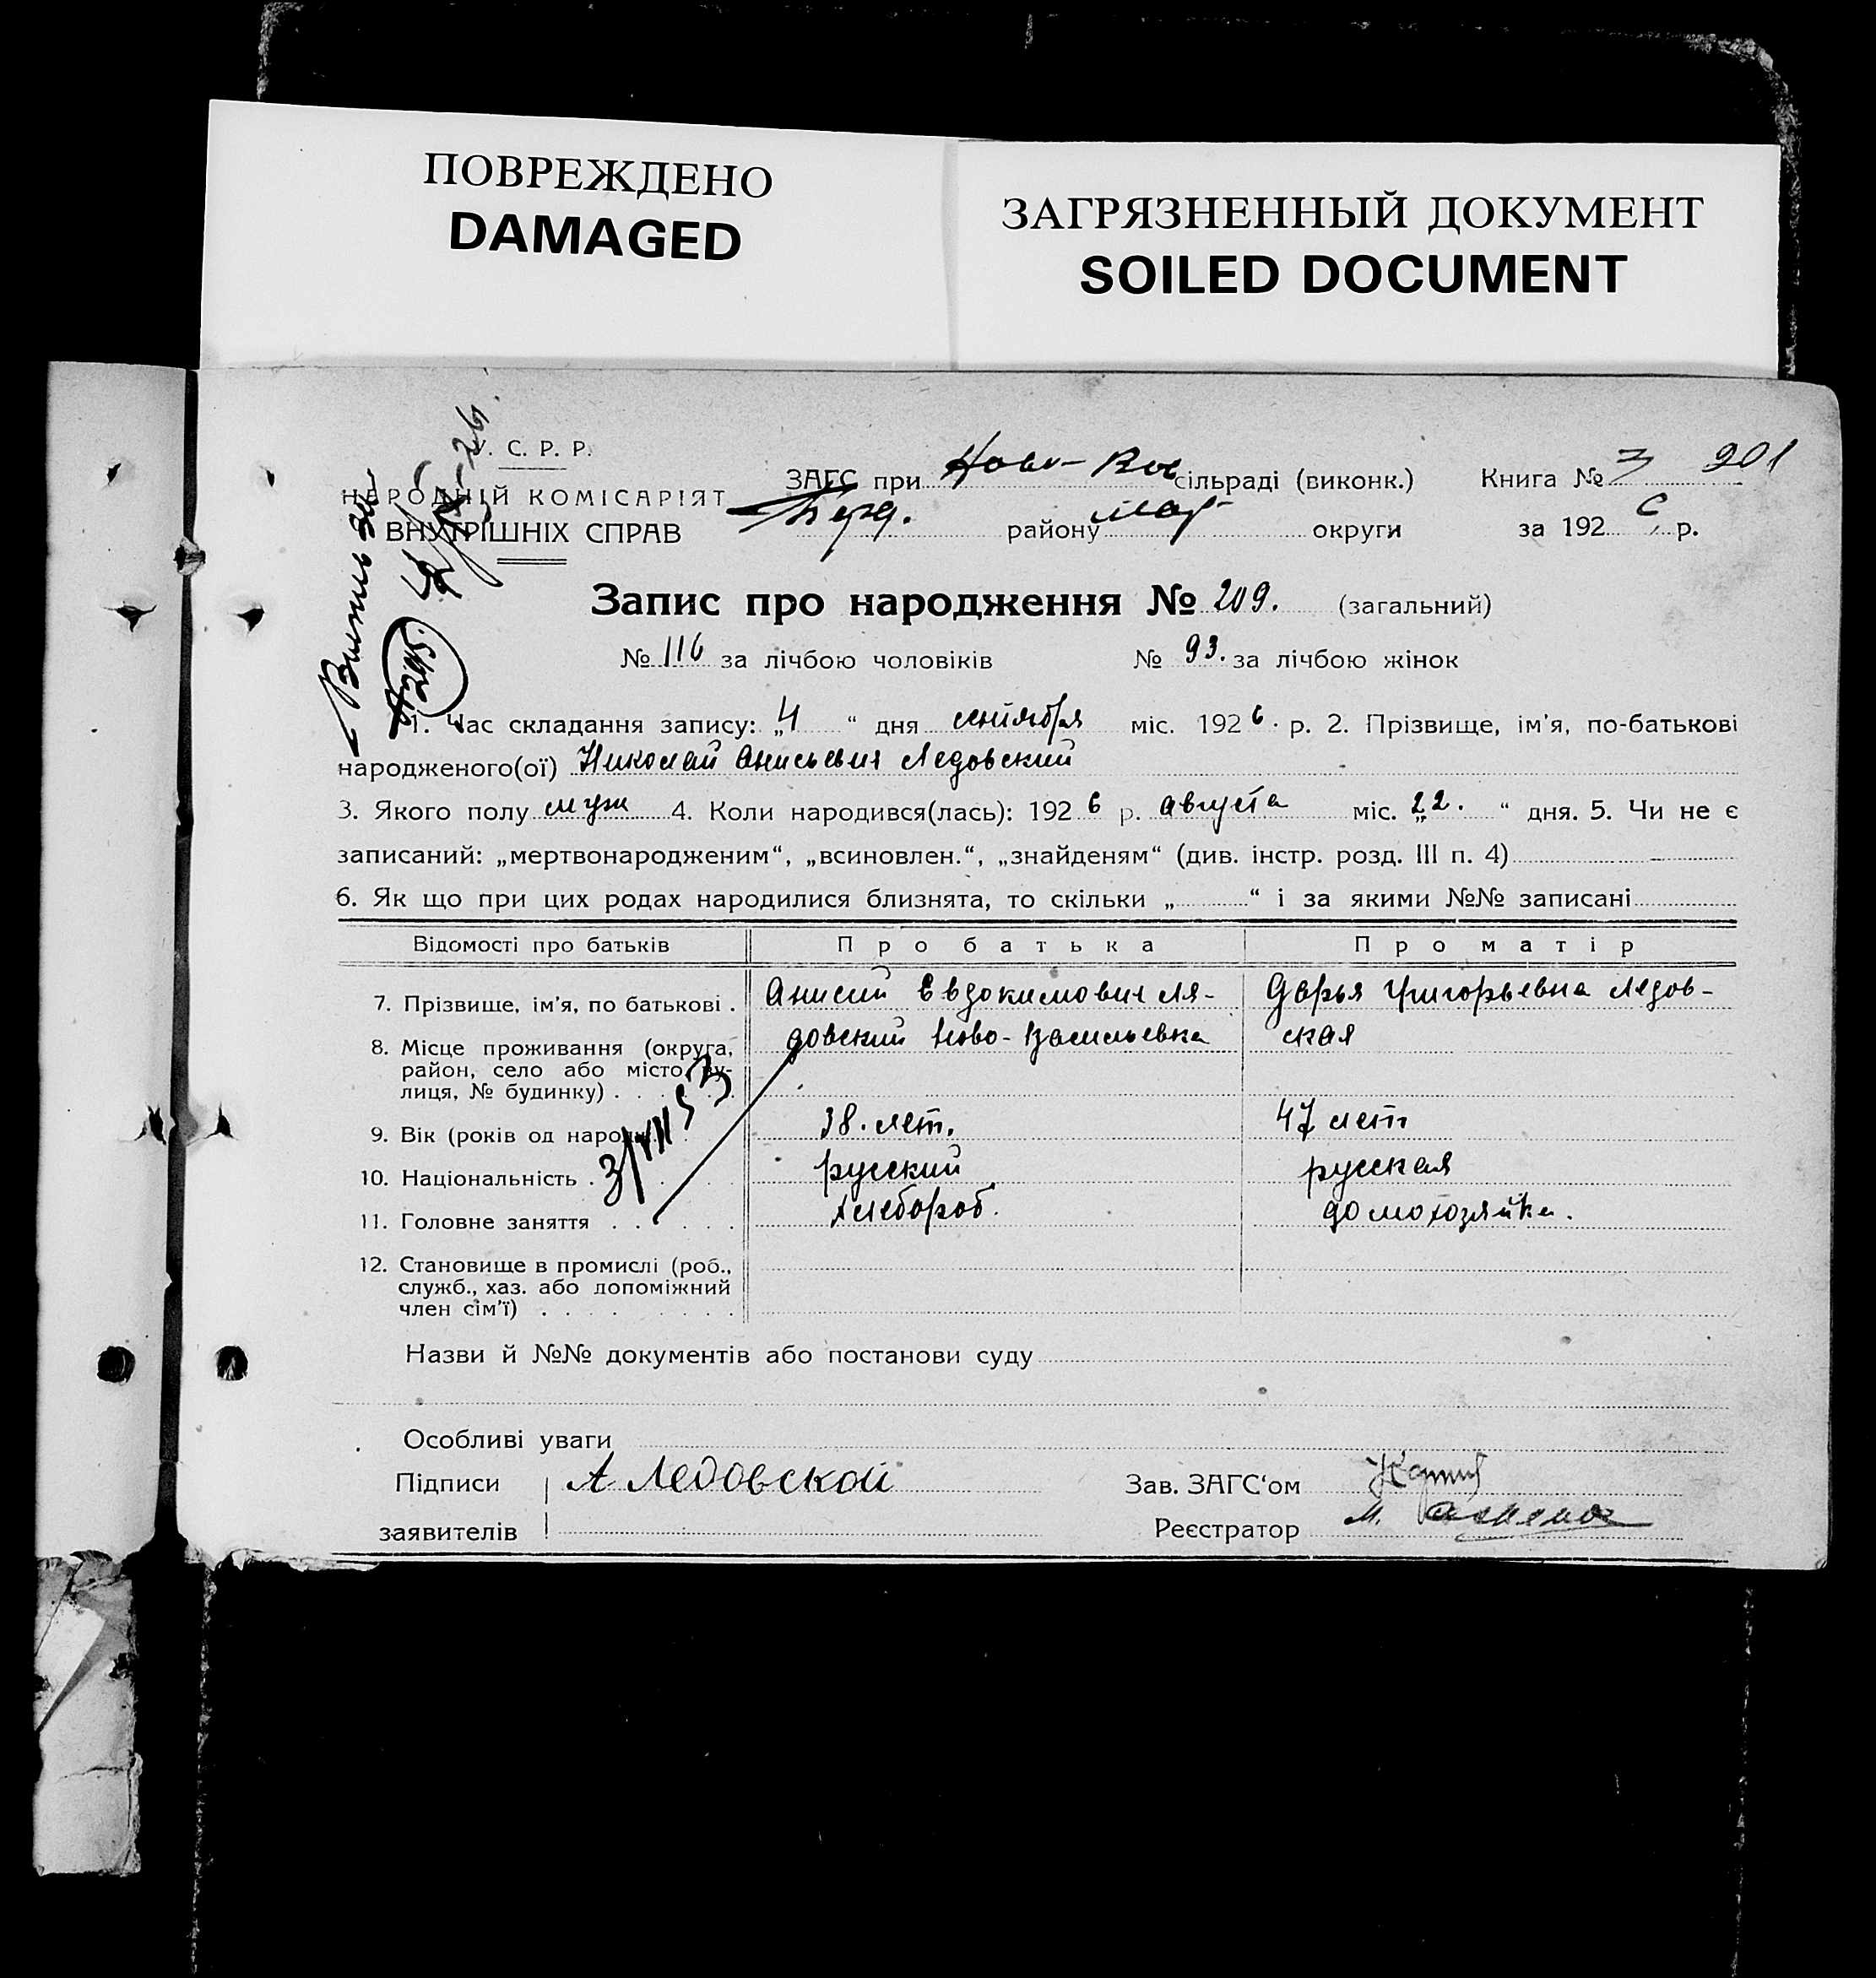 ПОВРЕЖДЕНО
DAMAGED
ЗАГРЯЗНЕННЫЙ ДОКУМЕНТ
SOILED DOCUMENT
У. С. Р. Р.
НАРОДНІЙ КОМІСАРІЯТ
ВНУТРІШНІХ СПРАВ
ЗАГС при Ново-Вас сільраді (виконк.) Книга № 3 201
Берд. району Мар округи за 1926 р.
Запис про народження № 209. (загальний)
№ 116 за лічбою чоловіків № 93. за лічбою жінок
1. Час складання запису: „4“ дня сентября міс. 1926. р. 2. Прізвище, ім'я, по-батькові
народженого(ої) Николай Анисьевич Ледовский
3. Якого полу муж 4. Коли народився(лась): 1926 р. августа міс. „22.“ дня. 5. Чи не є
записаний: „мертвонародженим“, „всиновлен.“, „знайденям“ (див. інстр. розд. III п. 4)
6. Як що при цих родах народилися близнята, то скільки „ “ і за якими №№ записані
Відомості про батьків Про батька Про матір
7. Прізвище, ім'я, по батькові . Анисий Евдокимович Ля- Дарья Григорьевна Ледов-
8. Місце проживання (округа, довский Ново-Васильевка ская
район, село або місто, ву-
лиця, № будинку) . . . . . .
9. Вік (років од народж. 38. лет. 47 лет
10. Національність . русский русская
3/VIII 53
11. Головне заняття . . хлебороб. домохозяйка.
12. Становище в промислі (роб.,
служб., хаз. або допоміжний
член сім'ї) . . . . . . . .
Назви й №№ документів або постанови суду
Особливі уваги
Підписи А Ледовской Зав. ЗАГС'ом
заявителів Реєстратор М.